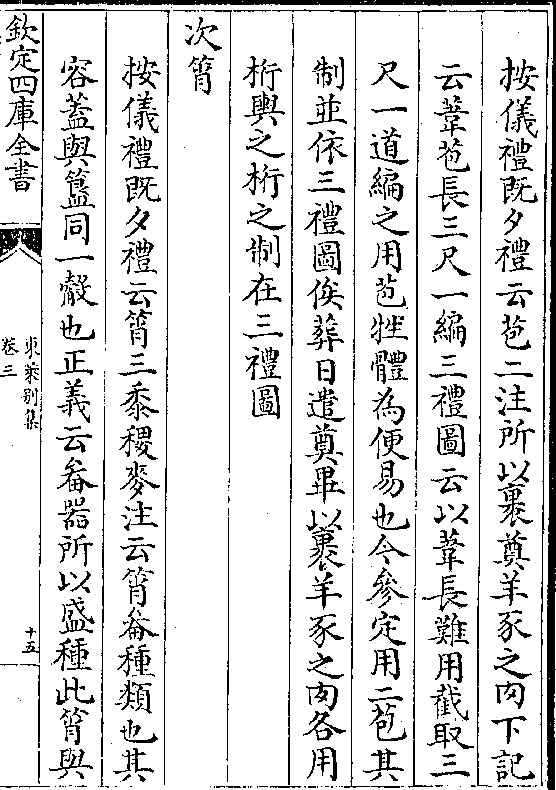 按儀禮既夕禮云苞二注所以裹奠羊豕之肉下記
云葦苞長三尺一編三禮圖云以葦長難用截取三
尺一道編之用苞牲體為便易也今參定用二苞其
制並依三禮圖俟葬日遣奠畢以裹羊豕之肉各用
桁輿之桁之制在三禮圖
次筲
按儀禮既夕禮云筲三黍稷麥注云筲畚種類也其
容蓋與簋同一觳也正義云畚器所以盛種此筲與
欽定四庫全書
東萊别集
卷三
十五